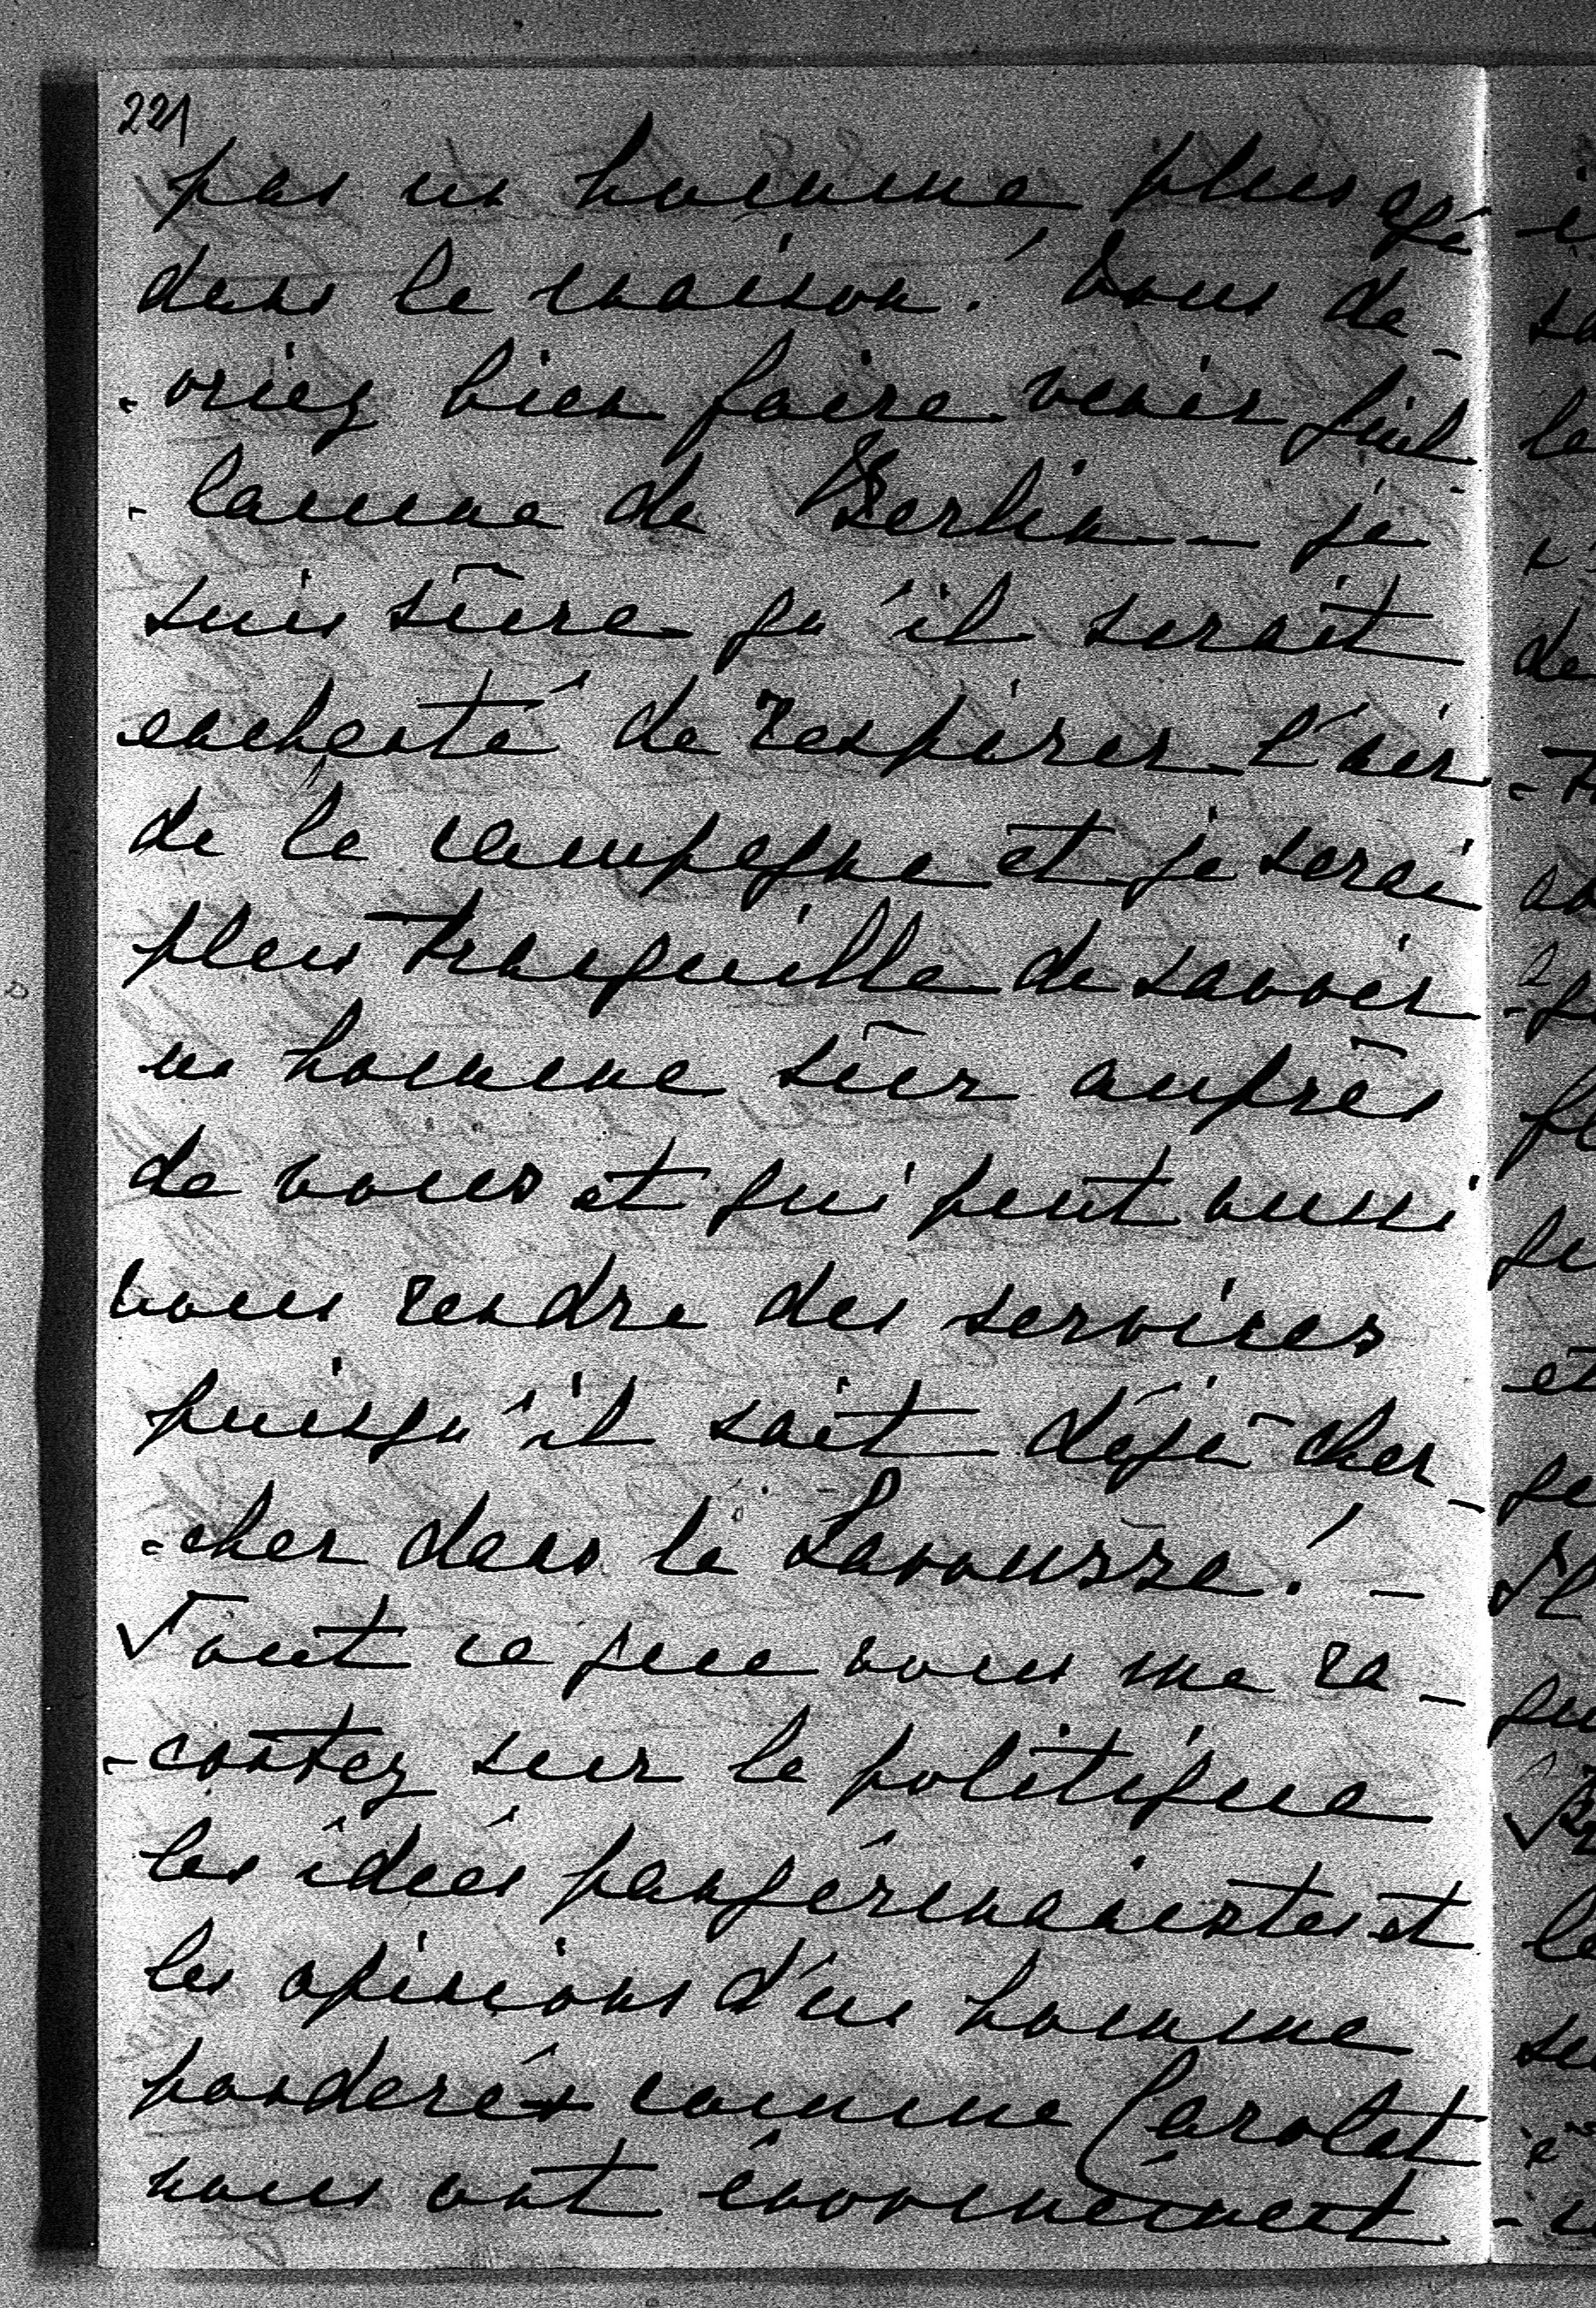 221
pas un homme plus agé
dans la maison! Vous de-
-vriez bien faire venir Guil-
-laume de Berlin -- je
suis sûre qu'il serait
enchanté de respirer l'air
de la campagne et je serai
plus tranquille de savoir
un homme sûr auprès
de vous et qui peut aussi
vous rendre des services
puisqu'il sait déjà cher-
-cher dans le Larousse! -
Tout ce que vous me ra-
-contez sur la politique
les idées pangermanistes et
les opinions d'un homme
ponderé comme Carolat
nous ont énormément